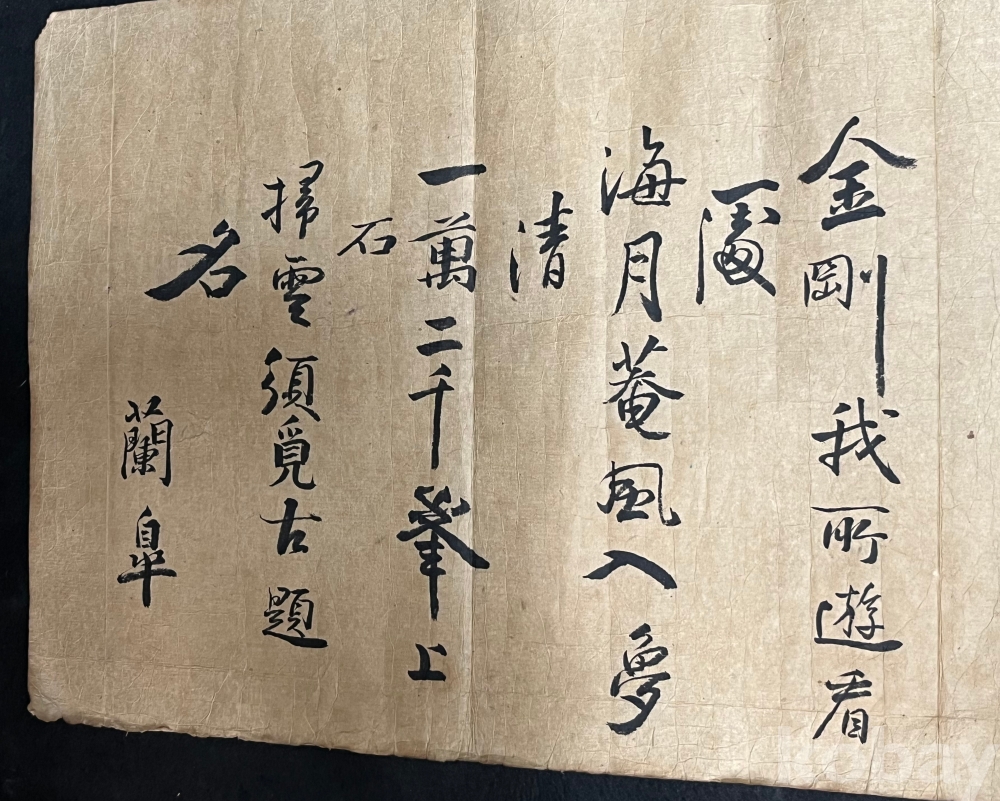 金剛我所遊看
海月菴風入夢
清
一萬二千峯上
石
掃雲須覓古題
名
蘭皐